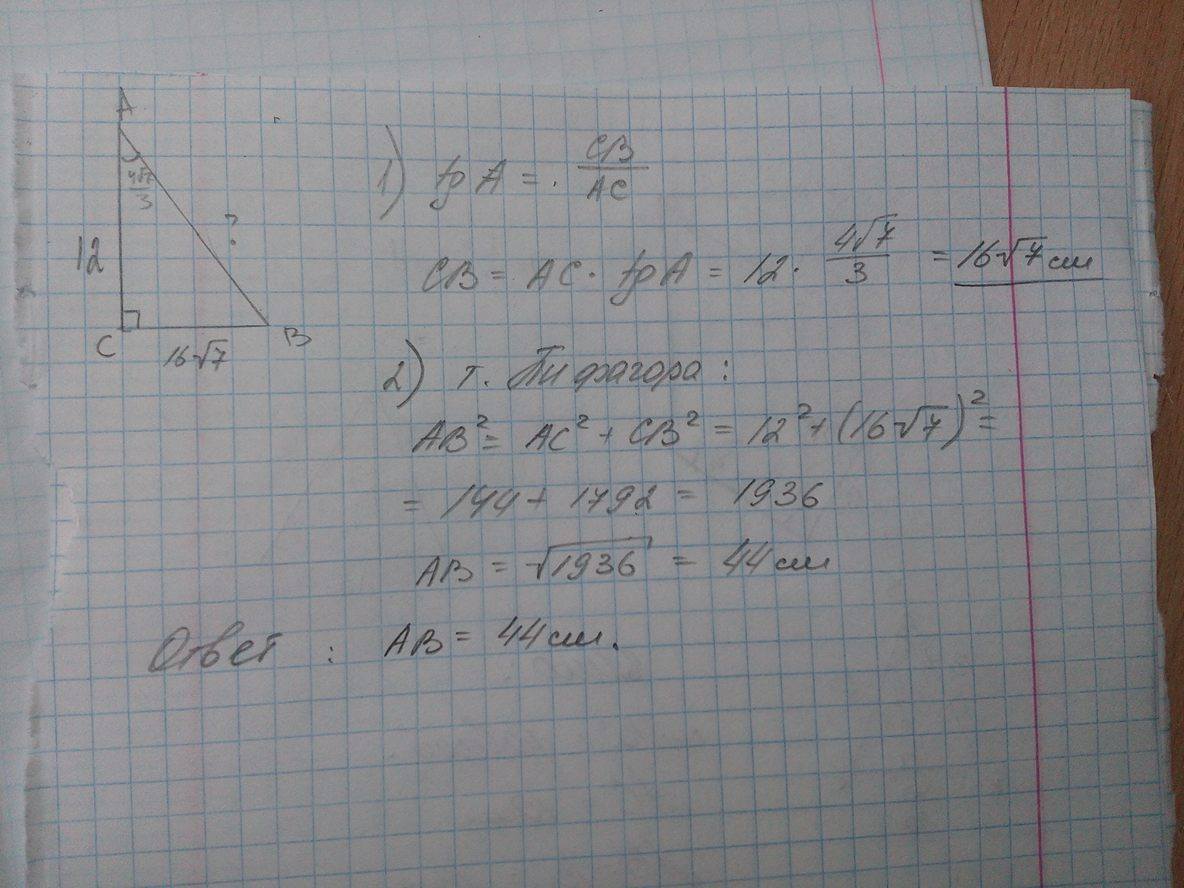 A
4√7/3
12
?
C
16√7
B
1) tg A = CB/AC
CB = AC · tg A = 12 · 4√7/3 = 16√7 см
2) т. Пифагора :
AB² = AC² + CB² = 12² + (16√7)² =
= 144 + 1792 = 1936
AB = √1936 = 44 см
Ответ : AB = 44 см.